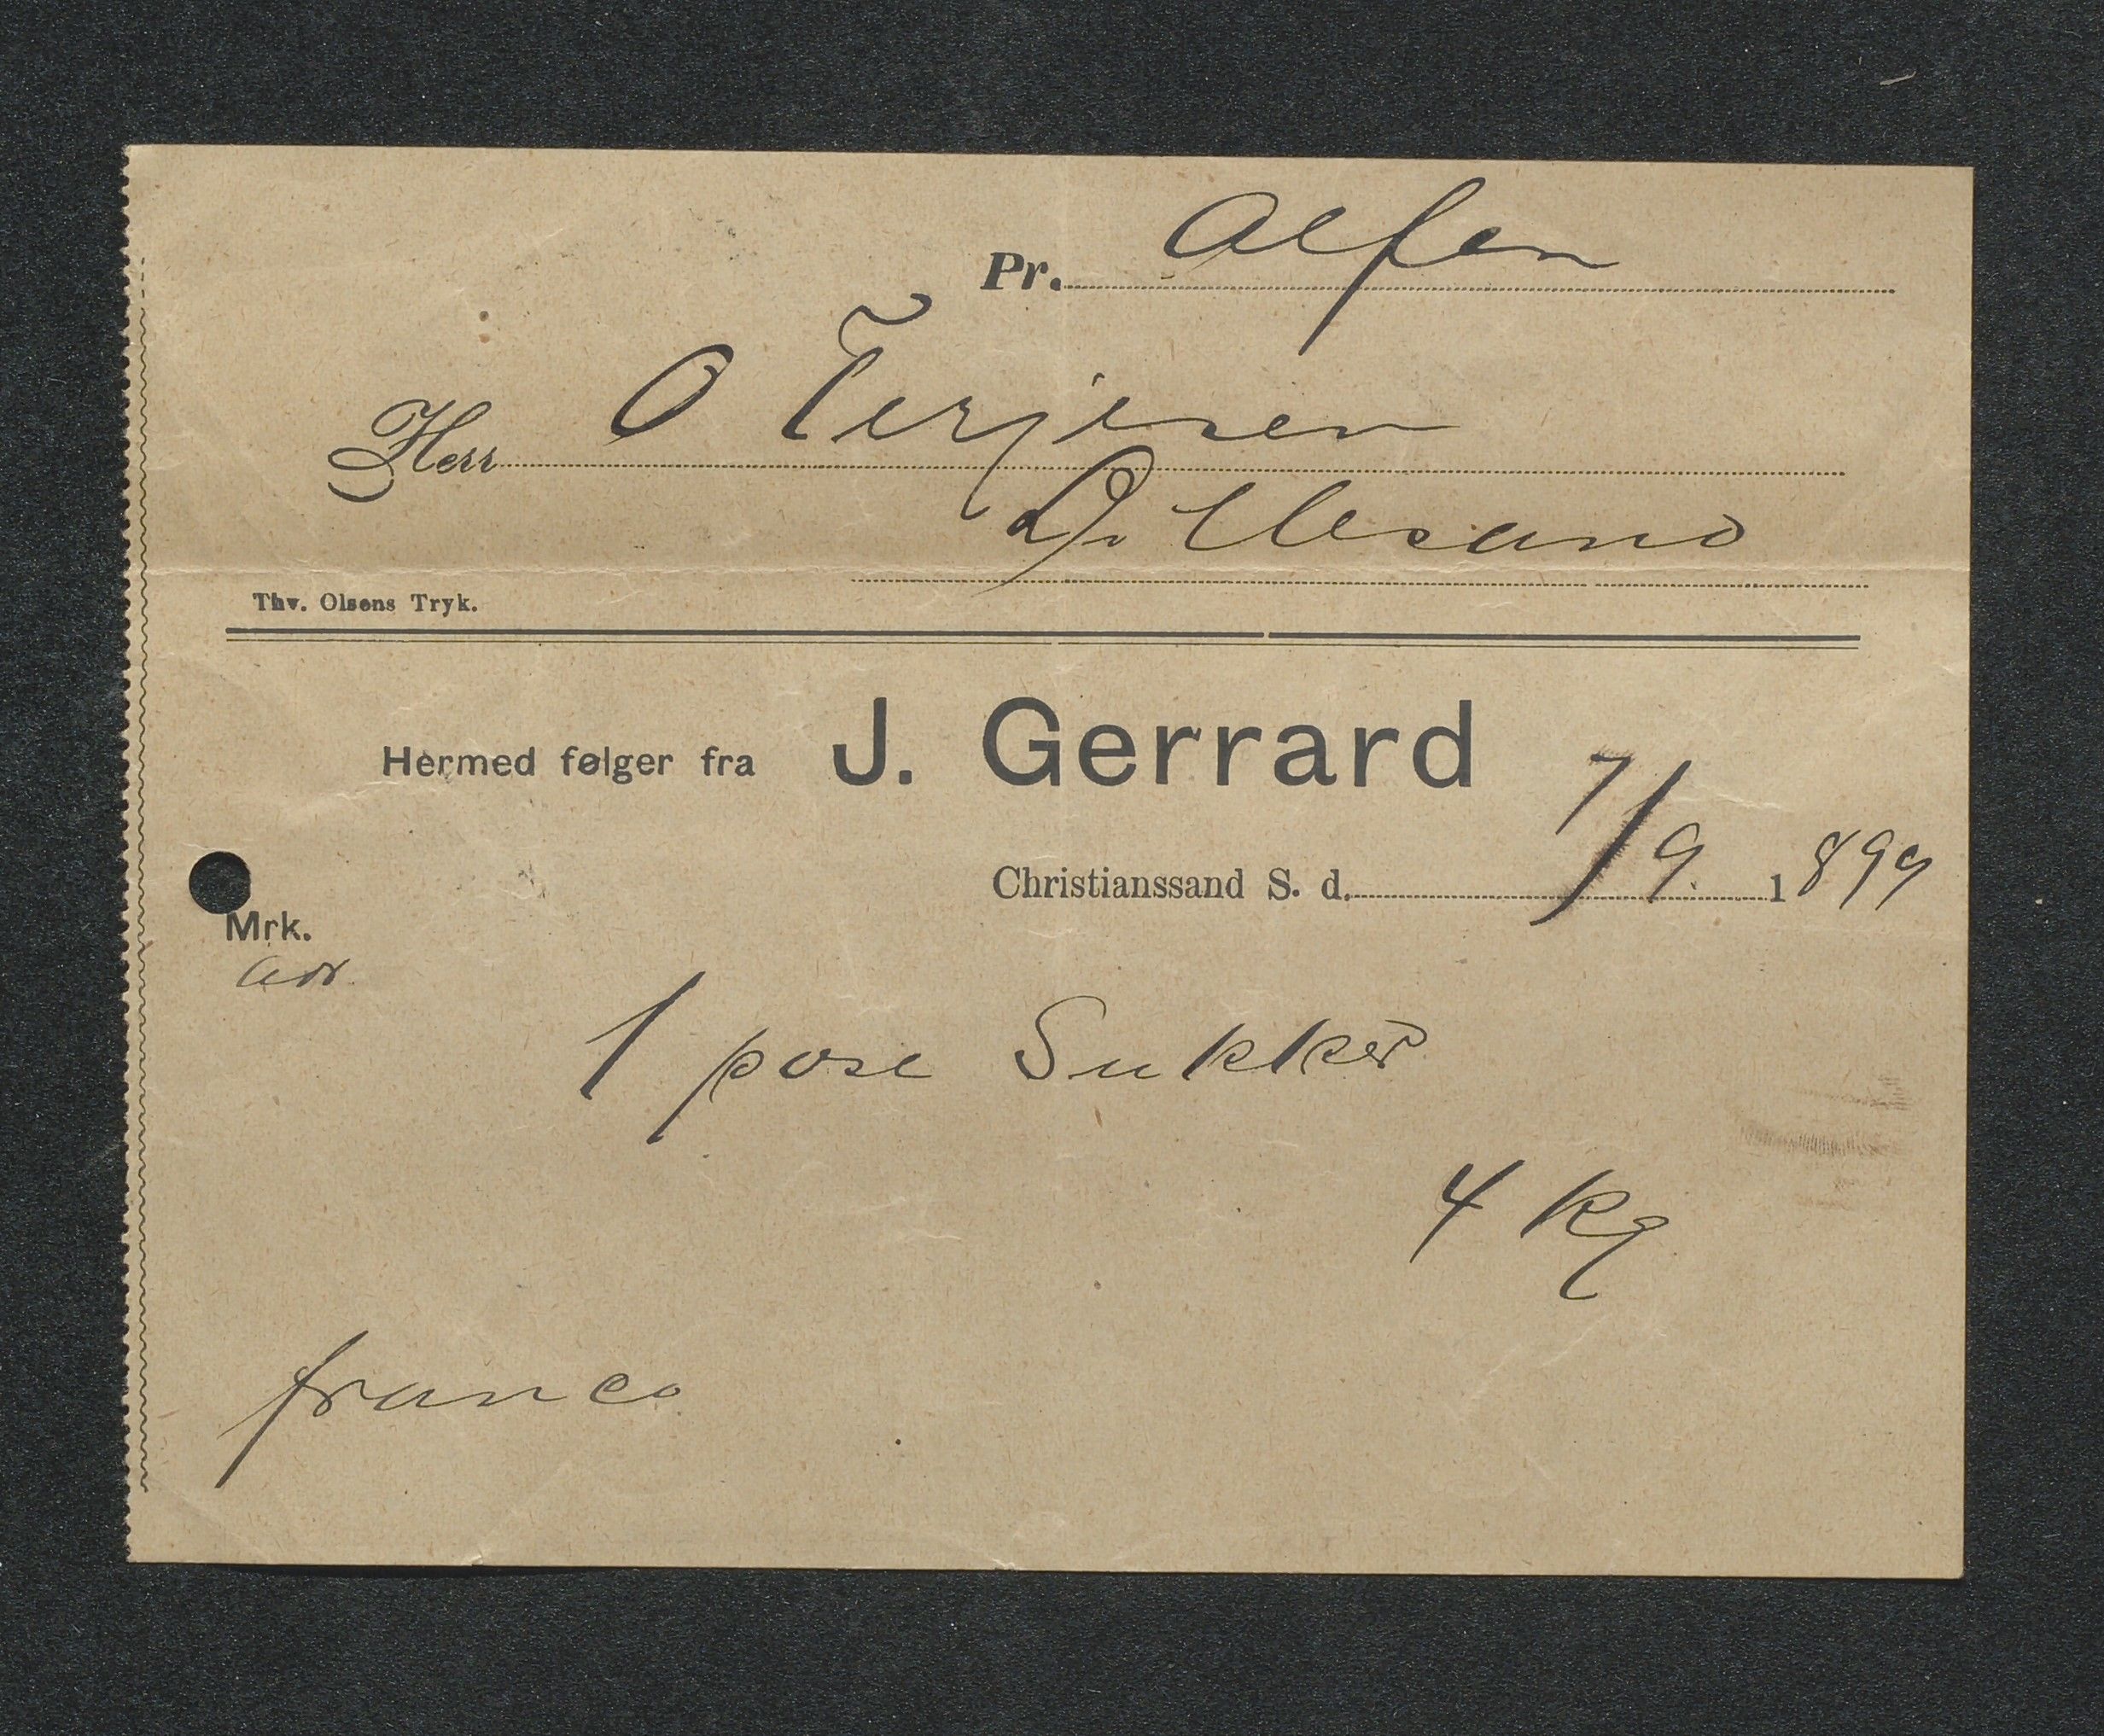 Pr. Alfen
Herr O Terjesen
Lillesand
Thv. Olsens Tryk.
Hermed følger fra J. Gerrard
Christianssand S. d. 7/9 1899
Mrk.
adr
1 pose Sukker
4 kg
franco